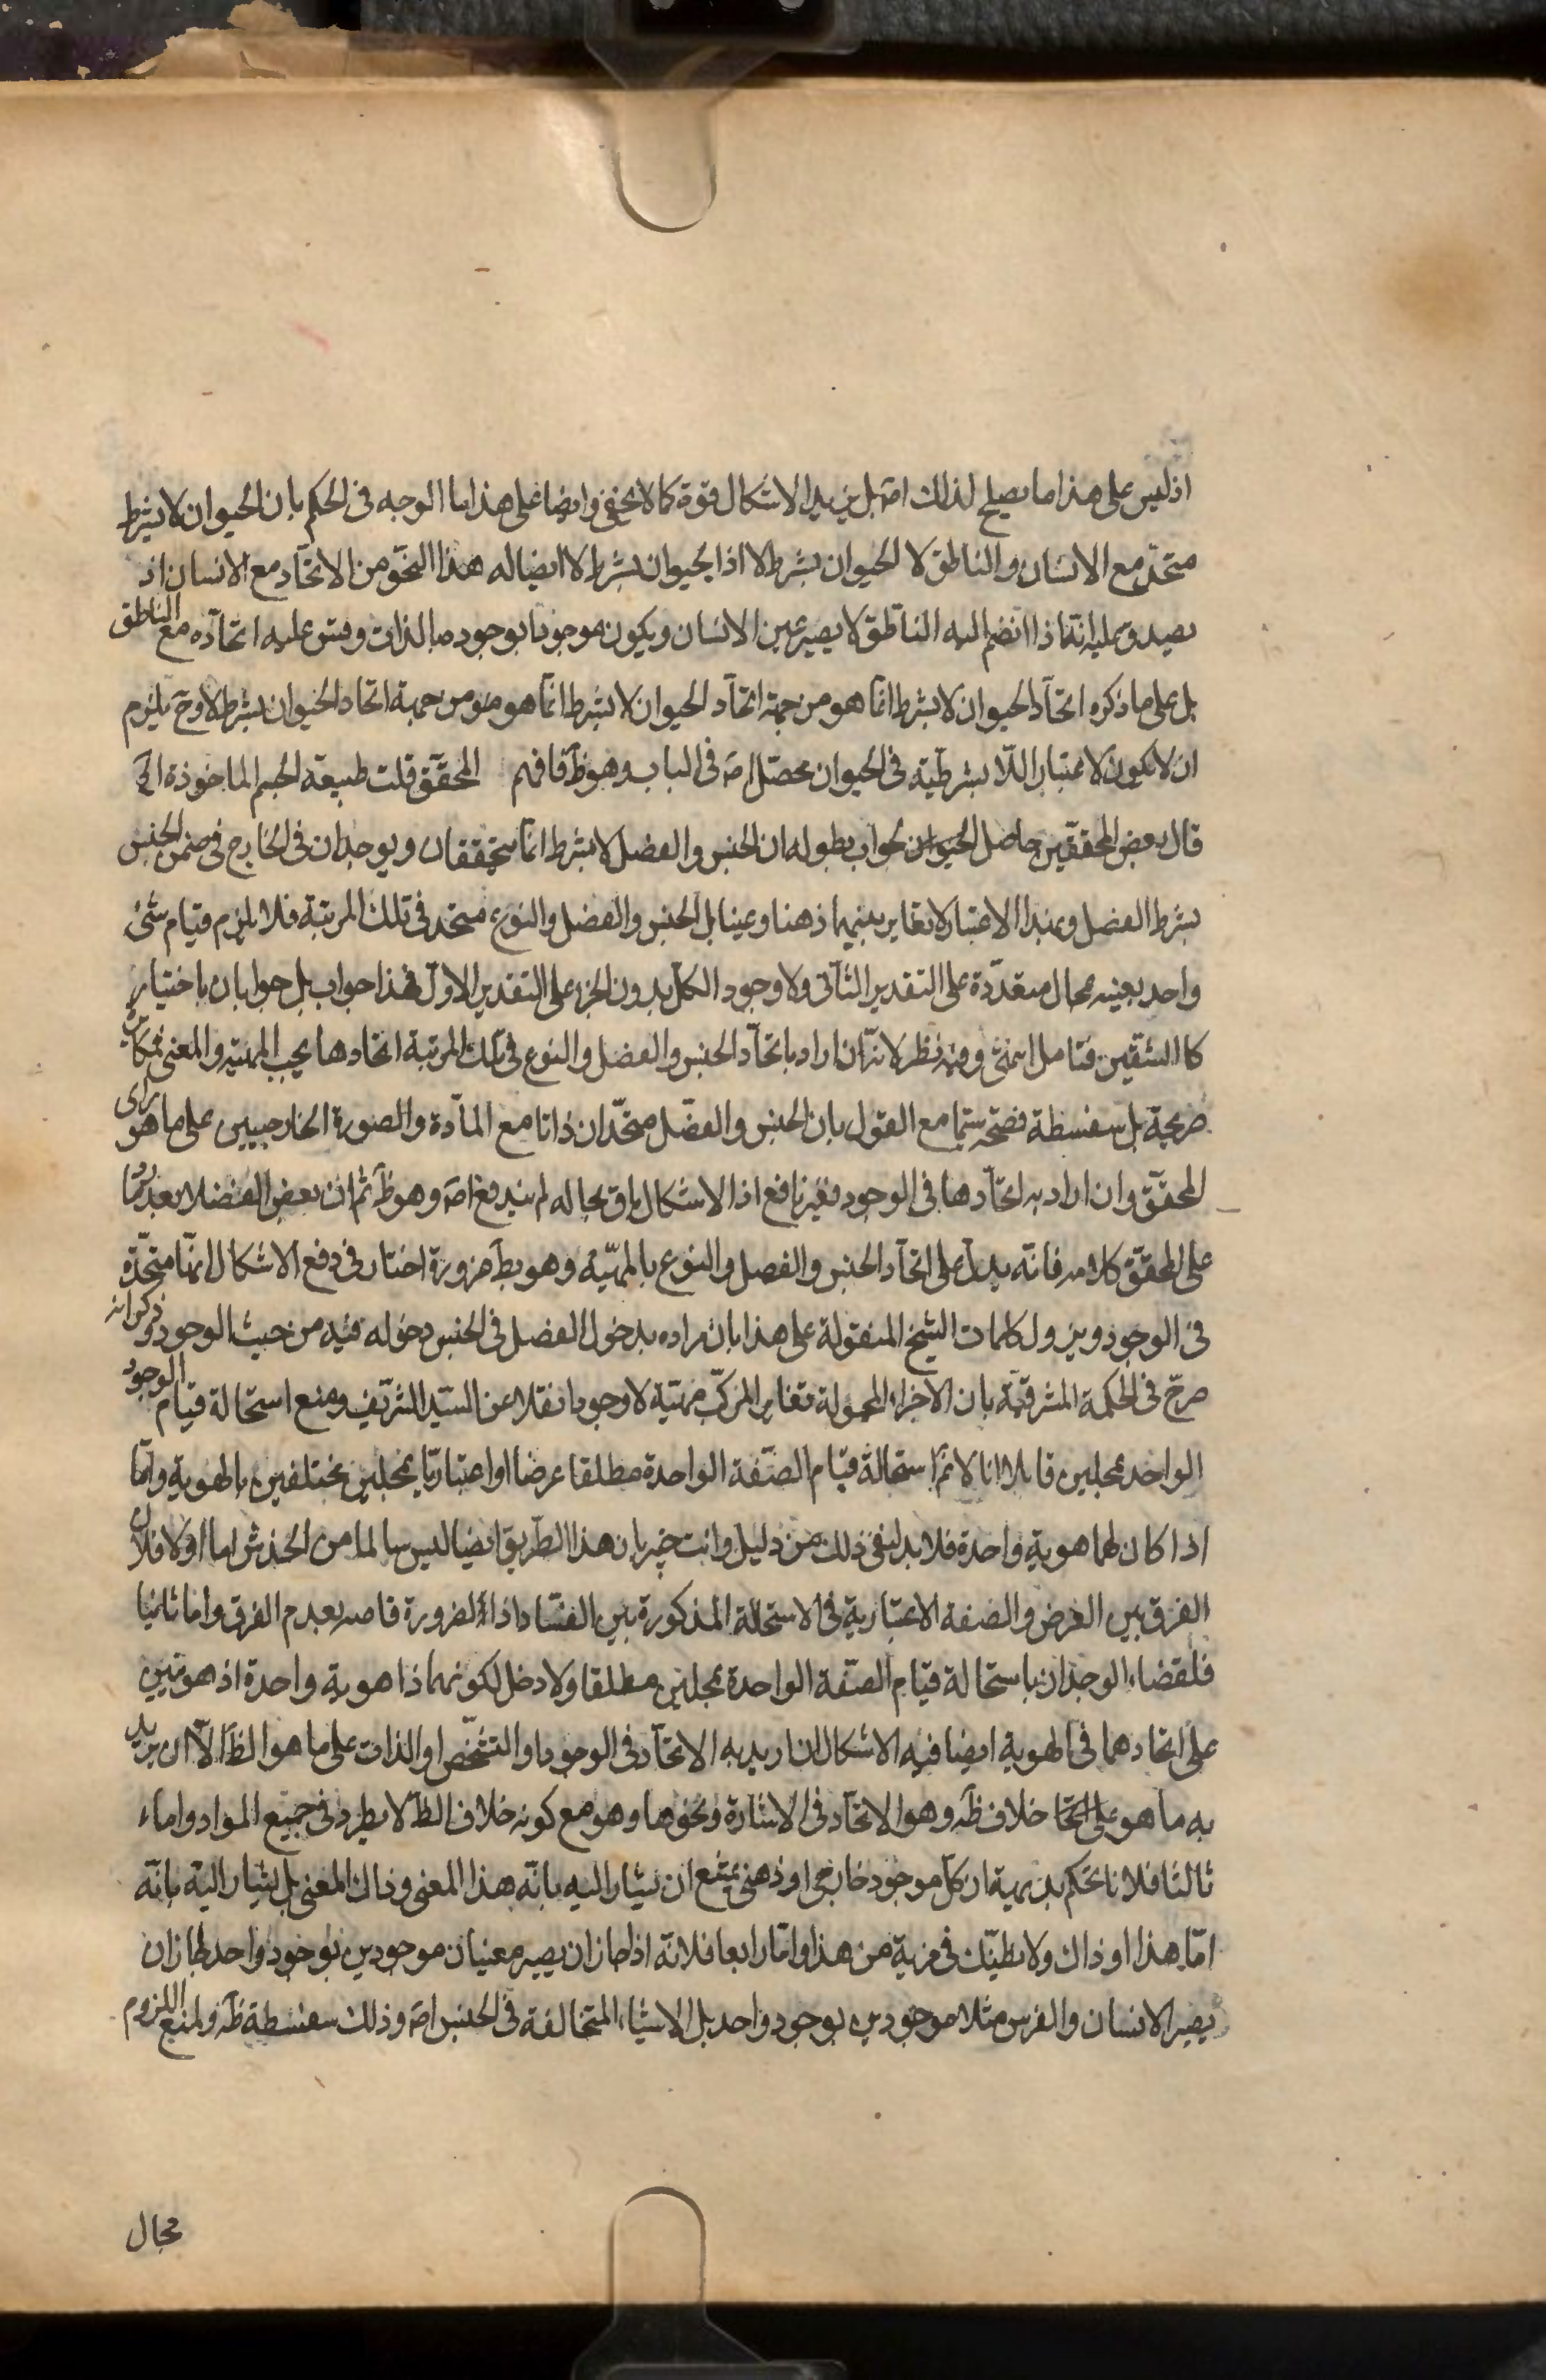 اذ ليس على هذا ما يصلح لذلك اصَ بل يزيد الاشكال قوة كما لا يخفى وايضا على هذا ما الوجه فى الحكم بان الحيوان لا بشرط
متحد مع الانسان والناطق لا الحيوان بشرط لا اذ الحيوان بشرط لا ايضا له هذا النحو من الاتحاد مع الانسان اذ
يصدق عليه انه اذا انضم اليه الناطق لا يصير عين الانسان ويكون موجودا بوجوده بالذات وقس عليه اتحاده مع الناطق
بل على ما ذكره اتحاد الحيوان لا بشرط انما هو من جهة اتحاد الحيوان لا بشرط انما هو من جهة اتحاد الحيوان بشرط لا وحَ يلزم
ان لا يكون لاعتبار اللا بشرطية فى الحيوان محصّل اصَ فى الباب وهو ظَ فافهم المحقق قلت طبيعة الجسم الماخوذة الخ
قال بعض المحققين حاصل الجواب بطوله ان الجنس والفصل لا بشرط انما يتحققان ويوجدان فى الخارج فى ضمن الجنس
بشرط الفصل وبهذا الاعتبار لا تغاير بينهما ذهنا وعينا بل الجنس والفصل والنوع متحد فى تلك المرتبة فلا يلزم قيام شئ
واحد بعينه بمحال متعددة على التقدير الثانى ولا وجود الكل بدون الجزء على التقدير الاول فهذا جواب بل جوابان باختيار
كلا الشقين فتامل انتهى وفيه نظر لانه ان اراد باتحاد الجنس والفصل والنوع فى تلك المرتبة اتحادها بحسب المهية والمعنى فمكابرة
صريحة بل سفسطة فضيحة سيما مع القول بان الجنس والفصل متحدان ذاتا مع المادة والصورة الخارجيين على ما هو راى
المحقق وان اراد به اتحادها فى الوجود فغير نافع اذ الاشكال باق بحاله لم يندفع اصَ وهو ظَ ثم ان بعض الفضلا بعد ما رد
على المحقق كلامه فانه يدل على اتحاد الجنس والفصل والنوع بالمهية وهو بط ضرورة اختار فى دفع الاشكال انها متحدة
فى الوجود وينزول كلمات الشيخ المنقولة على هذا بان مراده بدخول الفصل فى الجنس دخوله فيه من حيث الوجود وذكر انه
صرح فى الحكمة المشرقية بان الاجزاء المحمولة تغاير المركب مهية لا وجودا نقلا عن السيد الشريف ومنع استحالة قيام الوجود
الواحد بمحلين قائلا انا لا نم استحالة قيام الصفة الواحدة مطلقا عرضا او اعتباريا بمحلين مختلفين بالهوية واما
اذا كان لهما هوية واحدة فلا بد لنفى ذلك من دليل وانت خبير بان هذا الطريق ايضا ليس سالما من الخدش اما اولا فلان
الفرق بين العرض والصفة الاعتبارية فى الاستحالة المذكورة بين الفساد اذ الضرورة قاضية بعدم الفرق واما ثانيا
فلقضاء الوجدان باستحالة قيام الصفة الواحدة بمحلين مطلقا ولا دخل لكونهما ذا هوية واحدة اذ هويتين
على اتحادهما فى الهوية ايضا فيه الاشكال ان اريد به الاتحاد فى الوجود او التشخص او الذات على ما هو الظَ الا ان يريد
به ما هو على خلاف ظَه وهو الاتحاد فى الاشارة ونحوها وهو مع كونه خلاف الظَ لا يطرد فى جميع المواد واما
ثالثا فلانا نحكم بديهية ان كل موجود خارجى او ذهنى يمتنع ان يشار اليه بانه هذا المعنى وذاك المعنى بل يشار اليه بانه
اما هذا او ذاك ولا يظنك فى مرية من هذا واما رابعا فلانه اذا جاز ان يصير معنيان موجودين بوجود واحد لجاز ان
يصير الانسان والفرس مثلا موجودين بوجود واحد بل الاشياء المتخالفة فى الجنس اصَ وذلك سفسطة ظَه ولمنع اللزوم
مجال